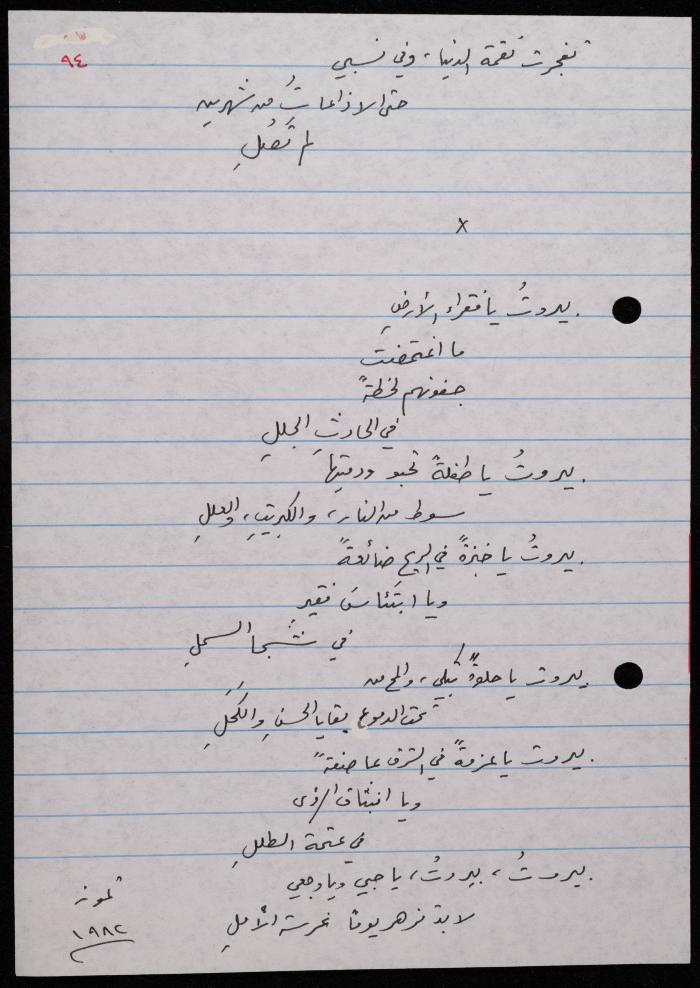 ٩٤
تفجرت نقمة الدنيا، وفي نسبي
حتى الاذاعاتُ من شهرين
لم تَصُلِ
x
بيروتُ يا فقراء الأرضِ
ما اغتمضت
جفونهم لحظةً
في الحادثِ الجللِ
بيروتُ يا طفلةً تحبو ودميتها
سوط من النار، والكبريتِ، والعللِ
بيروتُ يا خبزةً في الريح ضائعةً
ويا ابتَئاسَ فقيرٍ
في السملِ
بيروت يا حلوةً تبكي، والمح من
تحت الدموع بقايا الحسنِ والكَحَلِ
بيروت يا عزمةً في الشرق عاصفةً
ويا انبثاق
في عتمة الطللِ
بيروتُ، بيروتُ، يا حبي ويا وجعي
لا بد تزهر يومًا غرسة الأملِ
تموز
١٩٨٢